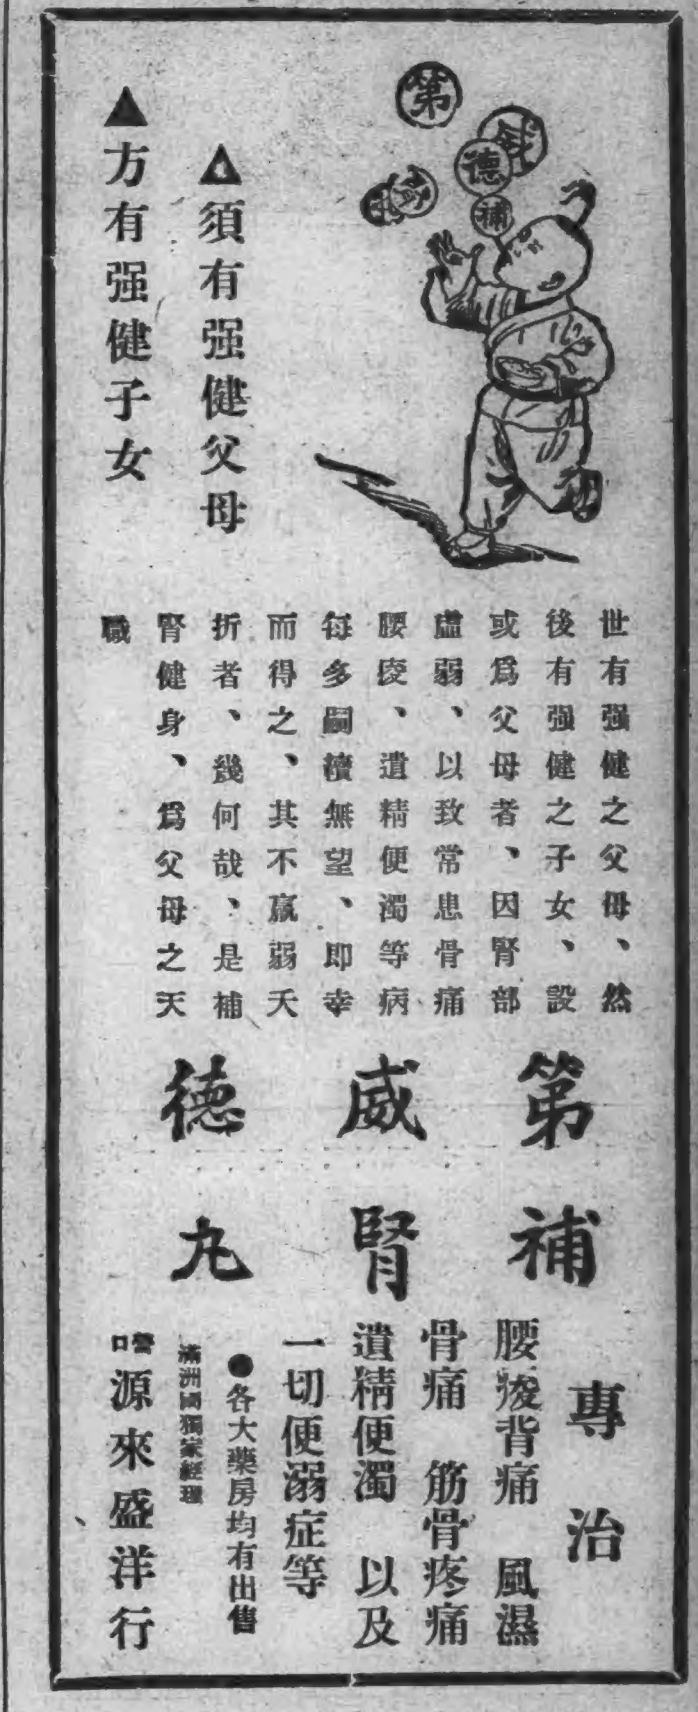 ▲須有强健父母
▲方有强健子女
第
威
德
補
腎
丸
世有强健之父母、然
後有强健之子女、設
或爲父母者、因腎部
虛弱、以致常患骨痛
腰痠、遺精便濁等病
每多嗣續無望、即幸
而得之、其不羸弱夭
折者、幾何哉、是補
腎健身、爲父母之天
職
第威德
補腎丸
專治
腰痠背痛 風濕
骨痛 筋骨疼痛
遺精便濁 以及
一切便溺症等
●各大藥房均有出售
滿洲國獨家經理
營口 源來盛洋行